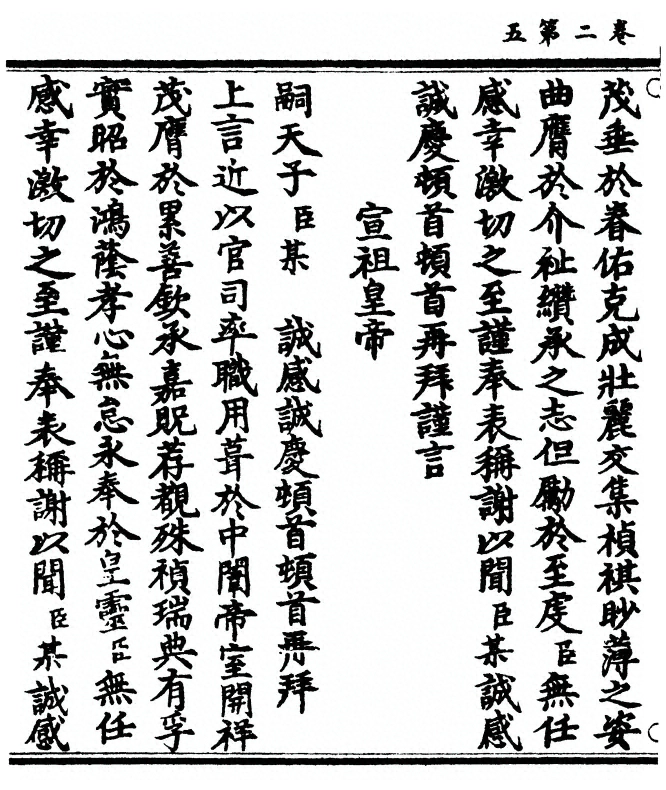 卷第二五
茂垂於眷佑克成壯麗交集禎祺眇薄之姿
曲膺於介祉纘承之志但勵於至虔臣無任
感幸激切之至謹奉表稱謝以聞臣某誠感
誠慶頓首頓首再拜謹言
宣祖皇帝
嗣天子臣某 誠感誠慶頓首頓首再拜
上言近以官司率職用葺於中闈帝室開祥
茂膺於累善欽承嘉貺荐觀殊禎瑞典有孚
實昭於鴻蔭孝心無怠永奉於皇靈臣無任
感幸激切之至謹奉表稱謝以聞臣某誠感